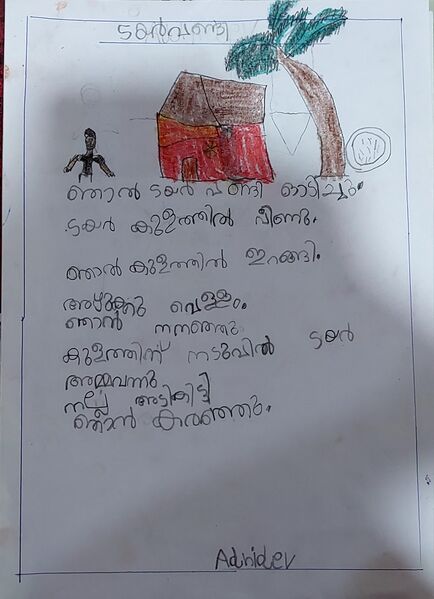 ടയർവണ്ടി
ഞാൻ ടയർ വണ്ടി ഓടിച്ചു.
ടയർ കുളത്തിൽ വീണു.
ഞാൻ കുളത്തിൽ ഇറങ്ങി.
അഴുക്കു വെള്ളം.
ഞാൻ നനഞ്ഞു
കുളത്തിന് നടുവിൽ ടയർ
അമ്മവന്നു
നല്ല അടികിട്ടി
ഞാൻ കരഞ്ഞു.
Adhidev